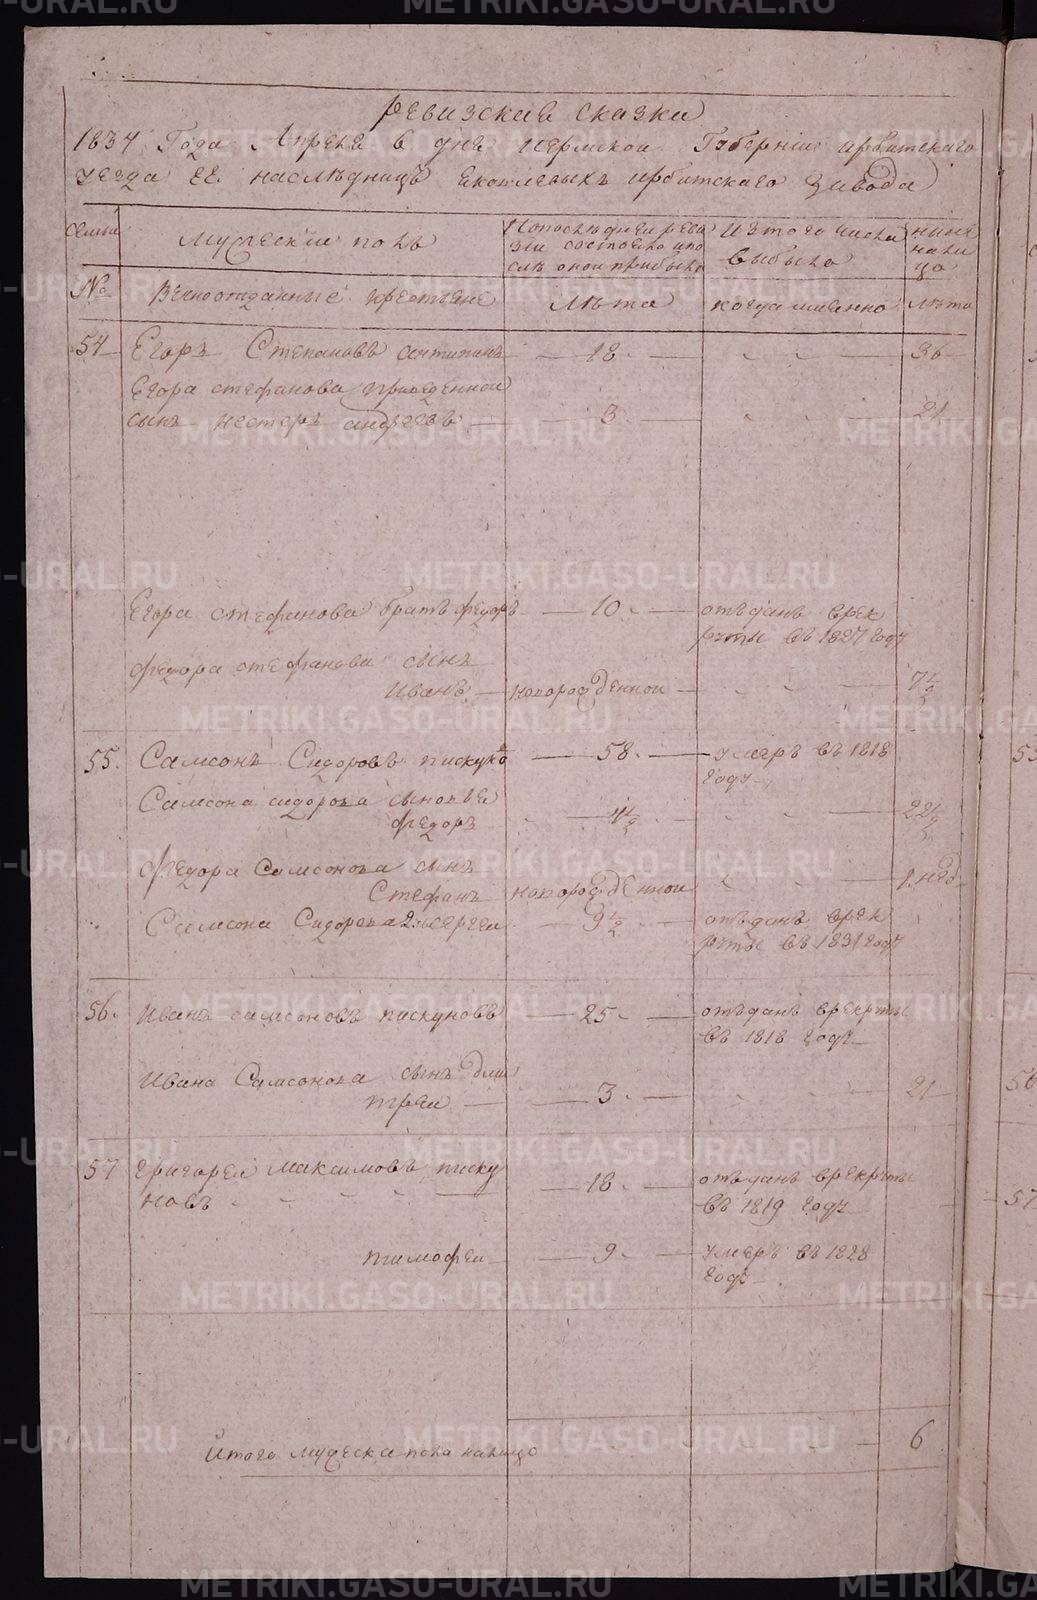 Ревизские сказки
1834 Года Апреля 6 дня Пермской Губернии ирбитскаго
уезда ГГ. наслѣдницъ Яковлевыхъ ирбитскаго завода
семьи
мужеский полъ
По последней реви
зии состояло и по
слѣ оной прибыло
Изтого числа
выбыло
ныне
нали
цо
№
Вечноотданные крестьяне
лѣта
когда имянно
лѣта
54 Егоръ Степановъ — 18 — 36
Егора стефанова приведенной
сынъ нестеръ андреевъ — 3 — 21
Егора стефанова братъ федоръ — 10 — отъданъ врек
руты въ 1827 году
федора стефанова сынъ
Иванъ — новорожденной — 7 1/2
55. Самсонъ Сидоровъ пискуно — 58 — умеръ въ 1818
году
Самсона сидорова сыновья
федоръ — 4 1/2 — 22 1/2
федора Самсонова сынъ
Стефанъ новорожденной — 1 нед
Самсона Сидорова 2 й сергеи — 9 1/2 — отъданъ врек
руты въ 1831 году
56. Иванъ самсоновъ пискуновъ — 25 — отъданъ врекруты
въ 1818 году
Ивана Самсонова сынъ дми
трей — 3 — 21
57 Григорей максимовъ писку
новъ — 18 — отъданъ врекруты
въ 1819 году
тимофеи — 9 — умеръ въ 1828
году
Итого мужеска пола налицо — 6
55
56
57
METRIKI.GASO-URAL.RU